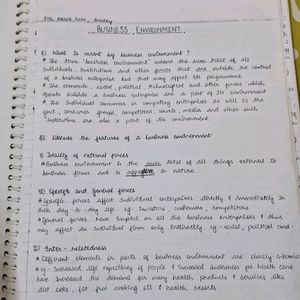 BUSINESS ENVIRONMENT
Q1. What is meant by business environment?
* The term 'business environment' means the sum total of all
individuals, institutions and other forces that are outside the control
of a business enterprise but that may affect its performance
* The economic, social, political, technological and other forces which
operate outside a business enterprise are a part of its environment
* The individual consumers or competing enterprises as well as the
govt., consumer groups, competitors, courts, media and other such
institutions are also a part of the environment.
Q2. Discuss the features of a business environment
i) Totality of external forces
* Business environment is the sum total of all things external to
business firms and is aggregative in nature
ii) Specific and General forces
* Specific forces affect individual enterprises directly & immediately in
their day-to-day life eg- investors, customers, competitors
* General forces have impact on all the business enterprises & thus
may affect an individual firm only indirectly. eg- social, political cond-
iii) Inter-relatedness
* Different elements or parts of business environment are closely inter
* eg- increased life expectancy of people & increased awareness for health care
have increased the demand for many health products & services like
diet coke, fat free cooking oil & health resorts